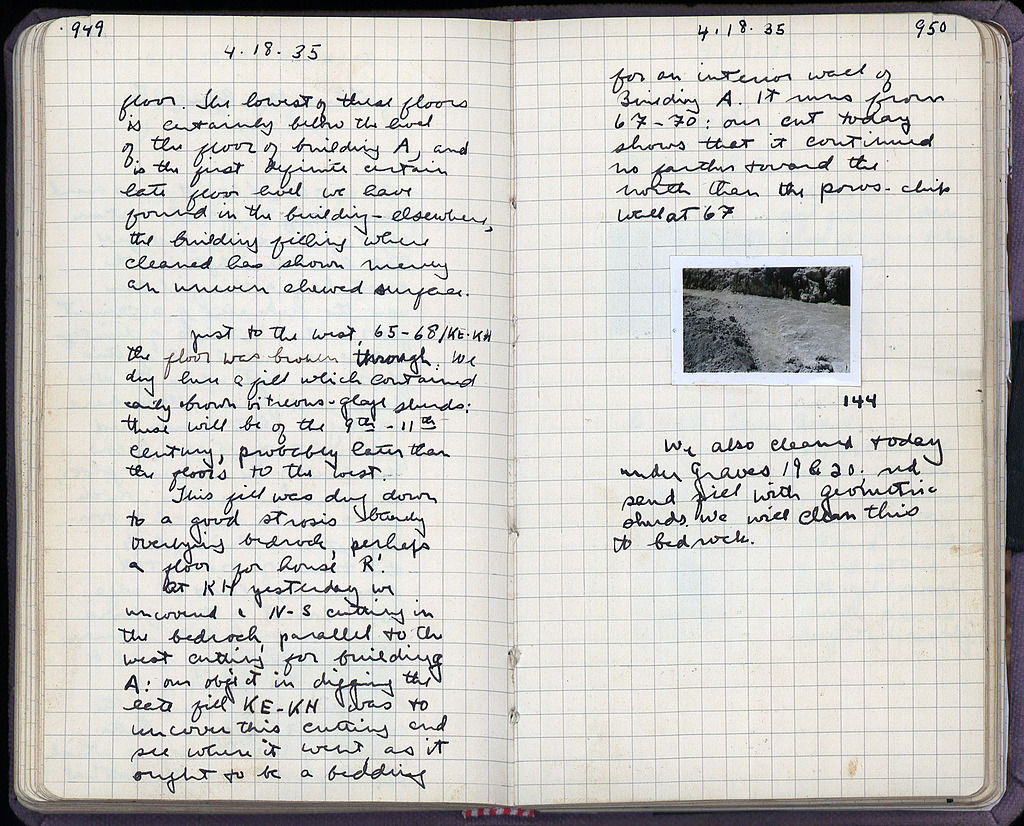 949
4.18.35
floor. The lowest of these floors
is certainly below the level
of the floor of building A, and
is the first definite certain
late floor level we have
found in the building - elsewhere,
the building filling where
cleaned has shown merely
an uneven chewed surface.
Just to the west, 65-68/KE-KH
the floor was broken through. We
dug here a fill which contained
early brown vitreous-glaze sherds:
these will be of the 9th - 11th
century, probably later than
the floors to the west.
This fill was dug down
to a good strosis
overlying bedrock, perhaps
a floor for house R'.
At KH yesterday we
uncovered a N-S cutting in
the bedrock, parallel to the
west cutting for building
A: our object in digging the
late fill KE-KH was to
uncover this cutting and
see where it went as it
ought to be a bedding
4.18.35
950
for an interior wall of
Building A. It runs from
67-70: our cut today
shows that it continued
no farther toward the
north than the poros-chip
wall at 67
144
We also cleaned today
under Graves 19 & 20.
fill with geometric
sherds, we will clean this
to bedrock.